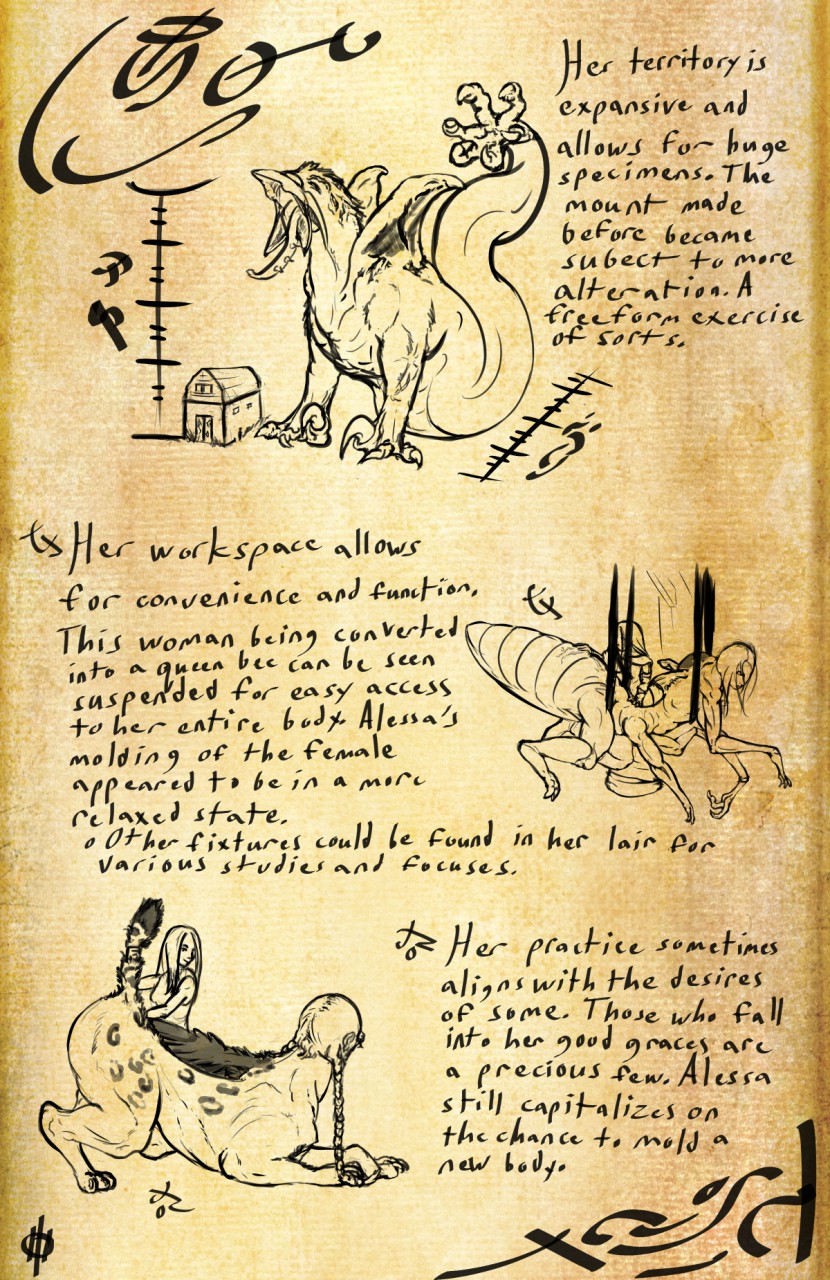 Her territory is
expansive and
allows for huge
specimens. The
mount made
before became
subect to more
alteration. A
freeform exercise
of sorts.
Her workspace allows
for convenience and function.
This woman being converted
into a queen bee can be seen
suspended for easy access
to her entire body. Alessa's
molding of the female
appeared to be in a more
relaxed state.
o Other fixtures could be found in her lair for
various studies and focuses.
Her practice sometimes
aligns with the desires
of some. Those who fall
into her good graces are
a precious few. Alessa
still capitalizes on
the chance to mold a
new body.